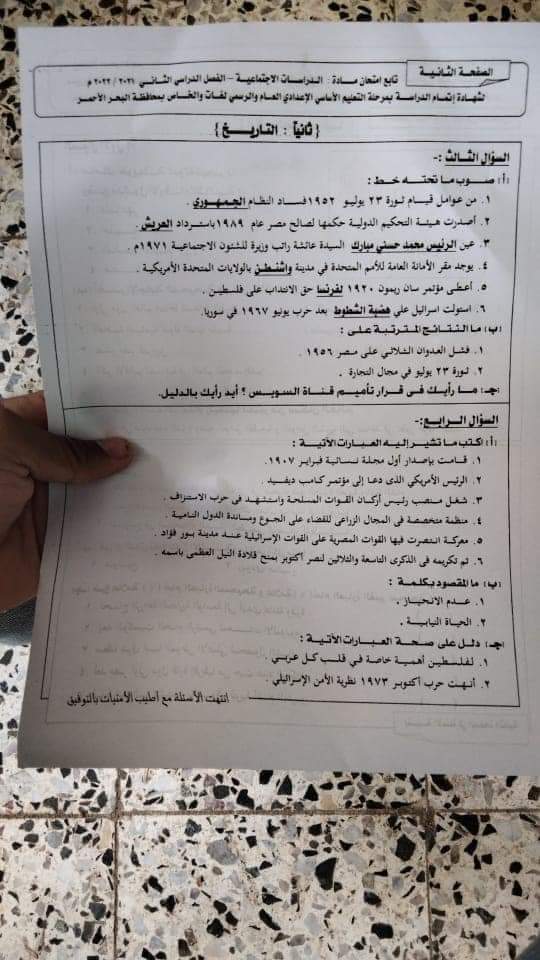 الصفحة الثانية
تابع امتحان مادة : الدراسات الاجتماعية - الفصل الدراسي الثاني ٢٠٢١ / ٢٠٢٢ م
لشهادة إتمام الدراسة بمرحلة التعليم الأساسي الإعدادي العام والرسمي لغات والخاص بمحافظة البحر الأحمر
{ ثانياً : التاريخ }
السؤال الثالث :-
أ: صوب ما تحته خط :
١. من عوامل قيام ثورة ٢٣ يوليو ١٩٥٢ فساد النظام الجمهوري .
٢. أصدرت هيئة التحكيم الدولية حكمها لصالح مصر عام ١٩٨٩ باسترداد العريش .
٣. عين الرئيس محمد حسني مبارك السيدة عائشة راتب وزيرة للشئون الاجتماعية ١٩٧١م .
٤. يوجد مقر الأمانة العامة للأمم المتحدة في مدينة واشنطن بالولايات المتحدة الأمريكية .
٥. أعطى مؤتمر سان ريمون ١٩٢٠ لفرنسا حق الانتداب على فلسطين .
٦. استولت اسرائيل علي هضبة الشطوط بعد حرب يونيو ١٩٦٧ في سوريا.
(ب) ما النتائج المترتبة على :
١. فشل العدوان الثلاثي على مصر ١٩٥٦ .
٢. ثورة ٢٣ يوليو في مجال التجارة .
(جـ: ما رأيك فى قرار تأميم قناة السويس ؟ أيد رأيك بالدليل.
السؤال الرابع:-
(أ: اكتب ما تشير إليه العبارات الآتية :
١. قامت بإصدار أول مجلة نسائية فبراير ١٩٠٧.
٢. الرئيس الأمريكي الذى دعا إلى مؤتمر كامب ديفيد .
٣. شغل منصب رئيس أركان القوات المسلحة واستشهد فى حرب الاستنزاف .
٤. منظمة متخصصة فى المجال الزراعى للقضاء على الجوع ومساندة الدول النامية .
٥. معركة انتصرت فيها القوات المصرية على القوات الإسرائيلية عند مدينة بور فؤاد .
٦. تم تكريمه فى الذكرى التاسعة والثلاثين لنصر أكتوبر بمنح قلادة النيل العظمى باسمه .
(ب) ما المقصود بكلمة :
١. عدم الانحياز .
٢. الحياة النيابية .
(جـ: دلل على صحة العبارات الآتية :
١. لفلسطين أهمية خاصة في قلب كل عربي .
٢. أنهت حرب أكتوبر ١٩٧٣ نظرية الأمن الإسرائيلي .
انتهت الأسئلة مع أطيب الأمنيات بالتوفيق